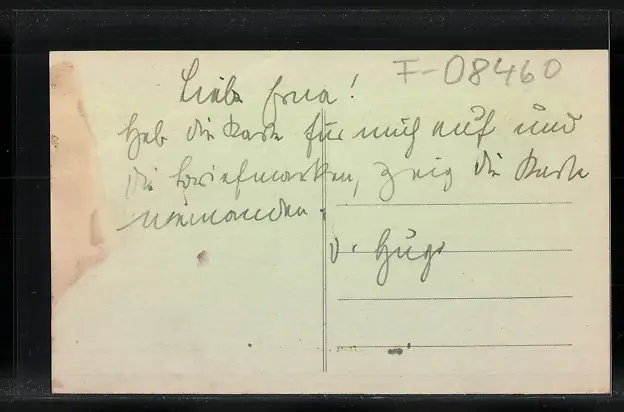 F-08460
Liebe Erna!
Heb die Karte für mich auf und
die Briefmarken, zeig die Karte
niemanden.
v. Hugo